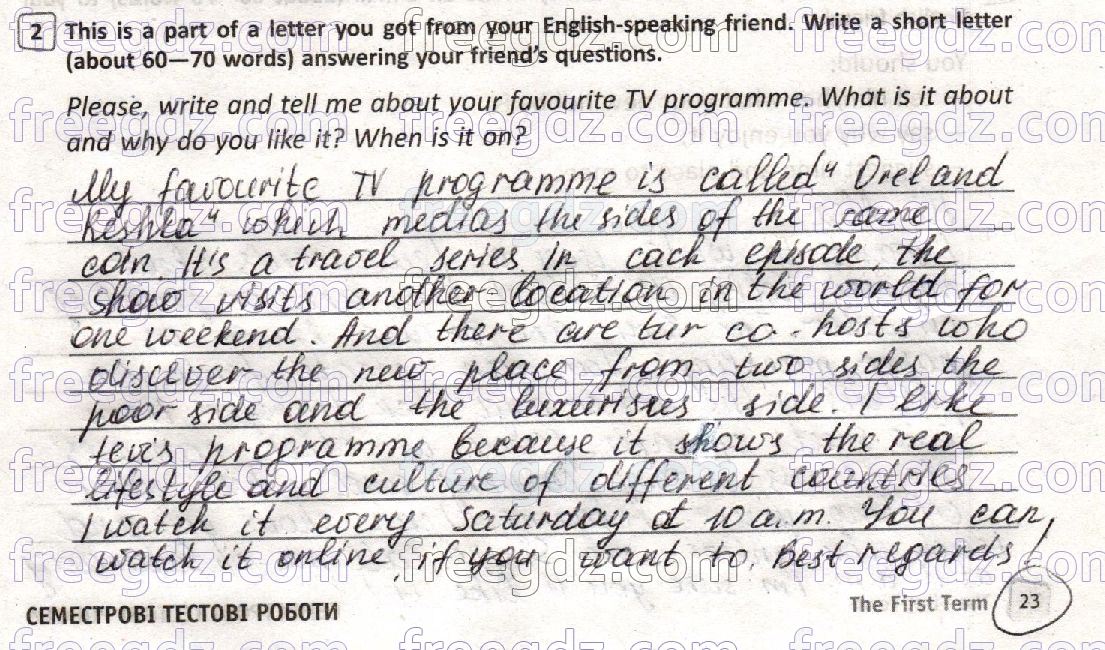 2 This is a part of a letter you got from your English-speaking friend. Write a short letter
(about 60—70 words) answering your friend's questions.
Please, write and tell me about your favourite TV programme. What is it about
and why do you like it? When is it on?
My favourite TV programme is called "Orel and
Reshka" which medias the sides of the same
coin. It's a travel series. In each episode, the
show visits another location in the world for
one weekend. And there are co-hosts who
discover the new place from two sides the
poor side and the side. I like
programme because it shows the real
lifestyle and culture of different countries
I watch it every Saturday at 10 a.m. You can
watch it online, if you want to. Best regards!
СЕМЕСТРОВІ ТЕСТОВІ РОБОТИ
The First Term 23
freegdz.com